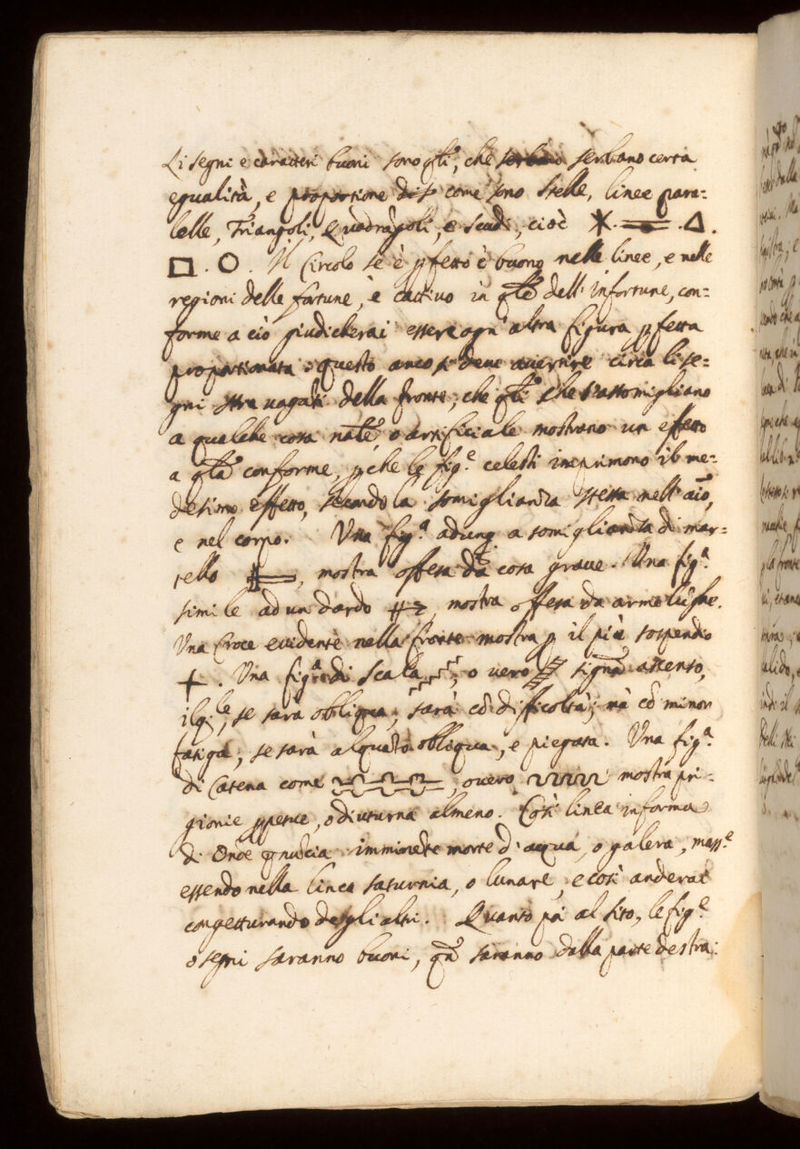 Li segni e caratteri buoni sono q̃lli, che serbano serbano certa
egualità, e proportione disp come sono Stelle, linee para-
lelle, Triangoli, Quadrãgoli, e Scudi, cioè
Il Circolo se è p̱fetto è buono nelle linee, e nelle
regioni delle fortune, è cattiuo in q̃lle dell'infortune, con-
forme a ciò giudicherai essere ogn'altra figura p̱fetta
proportionata: questo anco si deue auertire circa li se-
gni stra uaganti della fronte, che q̃lli che s'assomigliano
a qualche cosa nãle, o artificiale mostrano un effetto
a q̃lla conforme, p̱che le fig.e celesti imprimono il me-
desimo effetto, secondo la somiglianza stessa nell'aĩo,
e nel corpo. Una fig.a adunq a somiglianza di mar-
tello, mostra offesa da cosa graue. Una fig.a
simile ad un dardo, mostra offesa da arme lũghe.
Una Croce euidente nella fronte mostra p̱ il più sospendio
Una fig.a di scala, o uero signa ascenso,
il q.le, se sarà obliqua, sarà cõ difficoltà; mà cõ minor
fatiga, se sarà alquãto obliqua, e piegata. Una fig.a
di Catena come, ouero mostra pri-
gionie p̱petue, o diuturna almeno. Così linea in forma
di Onde p̱nuncia imminẽte morte d'acqua, o galera, mass.e
essendo nella linea saturnia, o lunare, e così anderai
congetturando degli altri. Quanto poi al sito, le fig.e
o segni saranno buoni, qñ saranno dalla parte destra: